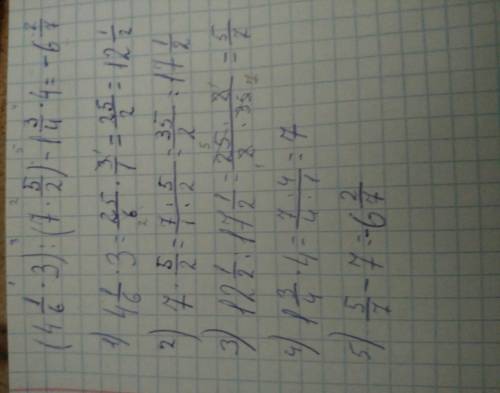 (4 1/6 · 3) : (7 · 5/2) - 1 3/4 · 4 = -6 2/7
1) 4 1/6 · 3 = 25/6 · 3/1 = 25/2 = 12 1/2
2) 7 · 5/2 = 7/1 · 5/2 = 35/2 = 17 1/2
3) 12 1/2 : 17 1/2 = 25/2 · 2/35 = 5/7
4) 1 3/4 · 4 = 7/4 · 4/1 = 7
5) 5/7 - 7 = -6 2/7